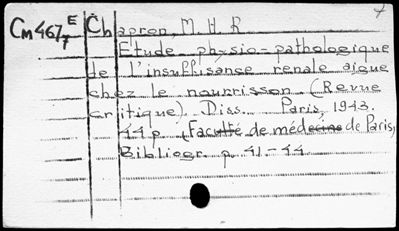 Cm467 E 7 Chapron, M. H. R
Etude physio-pathologique
de l'insuffisance renale aigue
chez le nourrisson (Revue
critique). Diss. Paris, 1943.
44 p (Faculté de médecine de Paris)
Bibliogr. p. 41-44